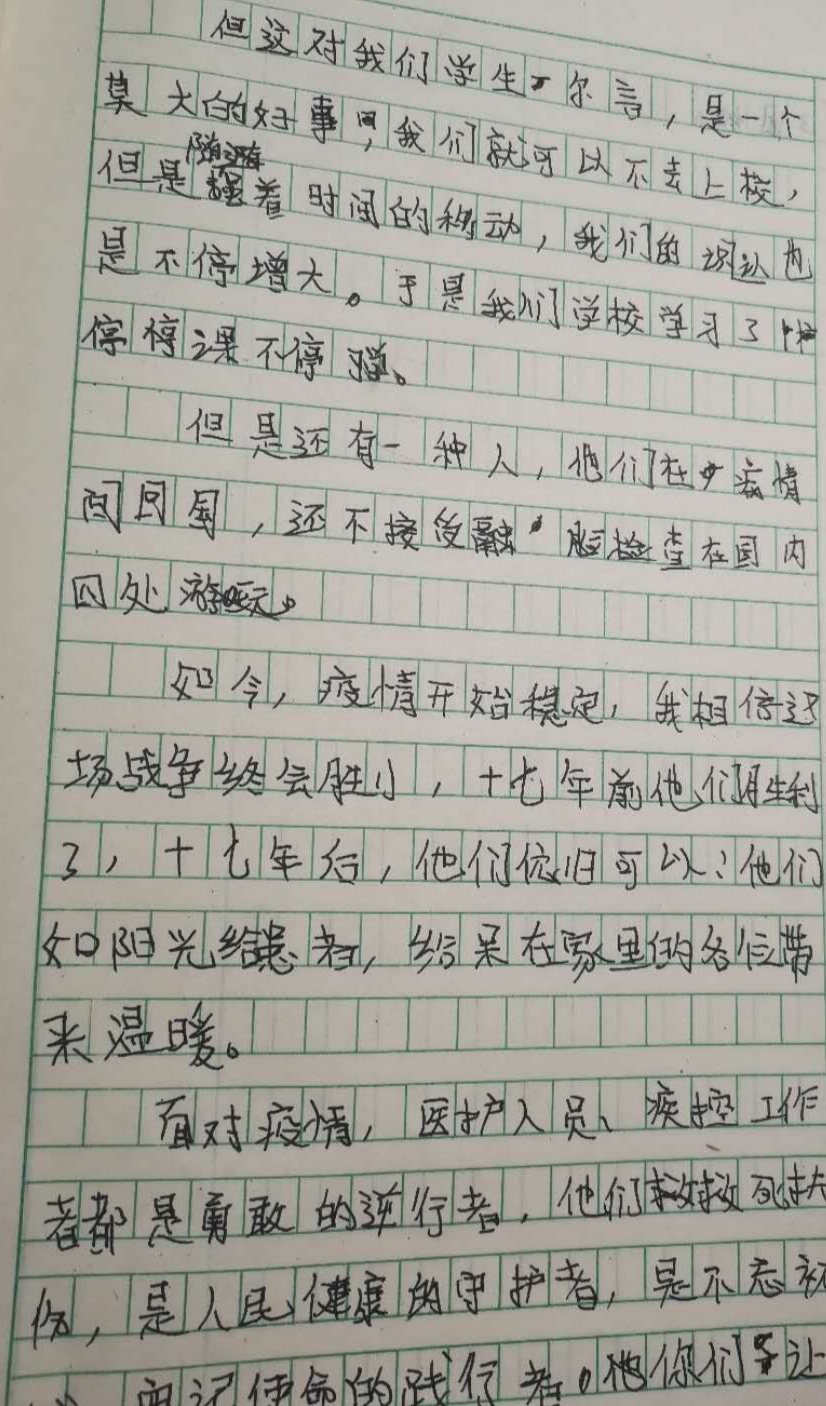 但这对我们学生而言，是一个
莫大的好事，我们就可以不去上校，
但是随着时间的移动，我们的认也
是不停增大。于是我们学校学习了
停停课不停学。
但是还有一种人，他们在疫情
间回国，还不接受检查在国内
四处游玩。
如今，疫情开始稳定，我相信这
场战争终会胜小，十七年前他们胜利
了，十七年后，他们依旧可以；他们
如阳光给患者，给呆在家里的各位带
来温暖。
面对疫情，医护人员、疾控工作
者都是勇敢的逆行者，他们救死扶
伤，是人民健康的守护者，是不忘初
牢记使命的践行者。你们让